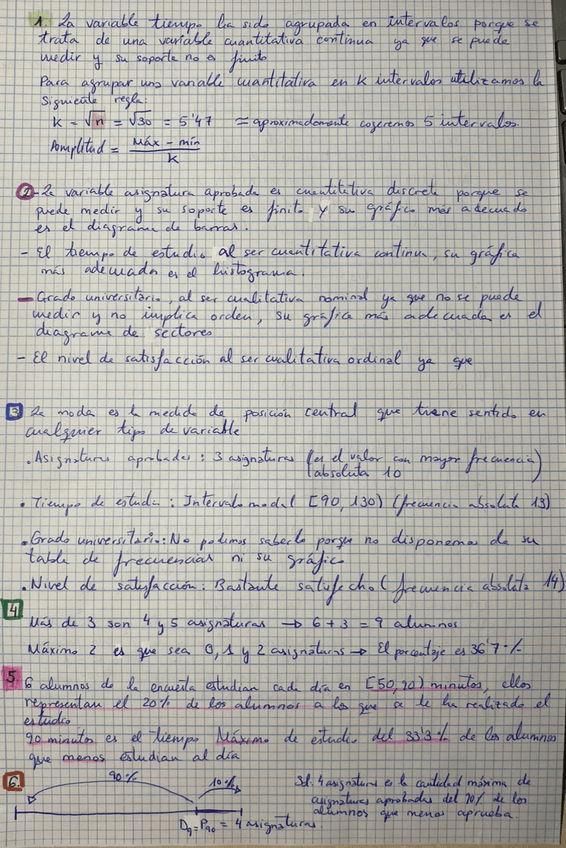 1. La variable tiempo ha sido agrupada en intervalos porque se
trata de una variable cuantitativa continua ya que se puede
medir y su soporte no es finito
Para agrupar una variable cuantitativa en K intervalos utilizamos la
siguiente regla
K = √n = √30 = 5'47 ≈ aproximadamente cogeremos 5 intervalos.
Amplitud = Máx - mín / K
2 - La variable asignatura aprobada es cuantitativa discreta porque se
puede medir y su soporte es finito y su gráfico más adecuado
es el diagrama de barras.
- El tiempo de estudio al ser cuantitativa continua, su gráfica
más adecuada es el histograma.
- Grado universitario, al ser cualitativa nominal ya que no se puede
medir y no implica orden, su gráfica más adecuada es el
diagrama de sectores
- El nivel de satisfacción al ser cualitativa ordinal ya que
3 La moda es la medida de posición central que tiene sentido en
cualquier tipo de variable
. Asignaturas aprobadas : 3 asignaturas (es el valor con mayor frecuencia
absoluta 10)
• Tiempo de estudio : Intervalo modal [90, 130) (frecuencia absoluta 13)
. Grado universitario: No podemos saberlo porque no disponemos de su
tabla de frecuencias ni su gráfico
. Nivel de satisfacción: Bastante satisfecho (frecuencia absoluta 14)
4 Más de 3 son 4 y 5 asignaturas → 6 + 3 = 9 alumnos
Máximo 2 es que sea 0, 1 y 2 asignaturas → El porcentaje es 36'7%
5. 6 alumnos de la encuesta estudian cada día en [50, 90) minutos, ellos
representan el 20% de los alumnos a los que se le ha realizado el
estudio
90 minutos es el tiempo Máximo de estudio del 33'3% de los alumnos
que menos estudian al día
6. 90% 10%
D9 = P90 = 4 asignaturas.
Sol. 4 asignaturas es la cantidad máxima de
asignaturas aprobadas del 90% de los
alumnos que menos aprueba